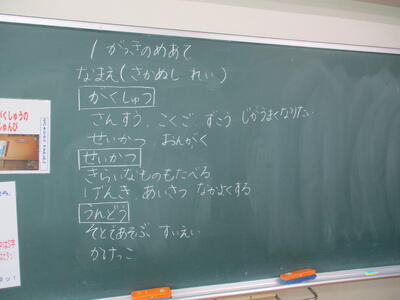 1がっきのめあて
なまえ(さかぬし れい)
がくしゅう
さんすう、こくご、ずこう じがうまくなりたい
せいかつ おんがく
せいかつ
きらいなものもたべる
げんき、あいさつ なかよくする
うんどう
そとであそぶ、すいえい
かけっこ
がくしゅうの
じゅんび